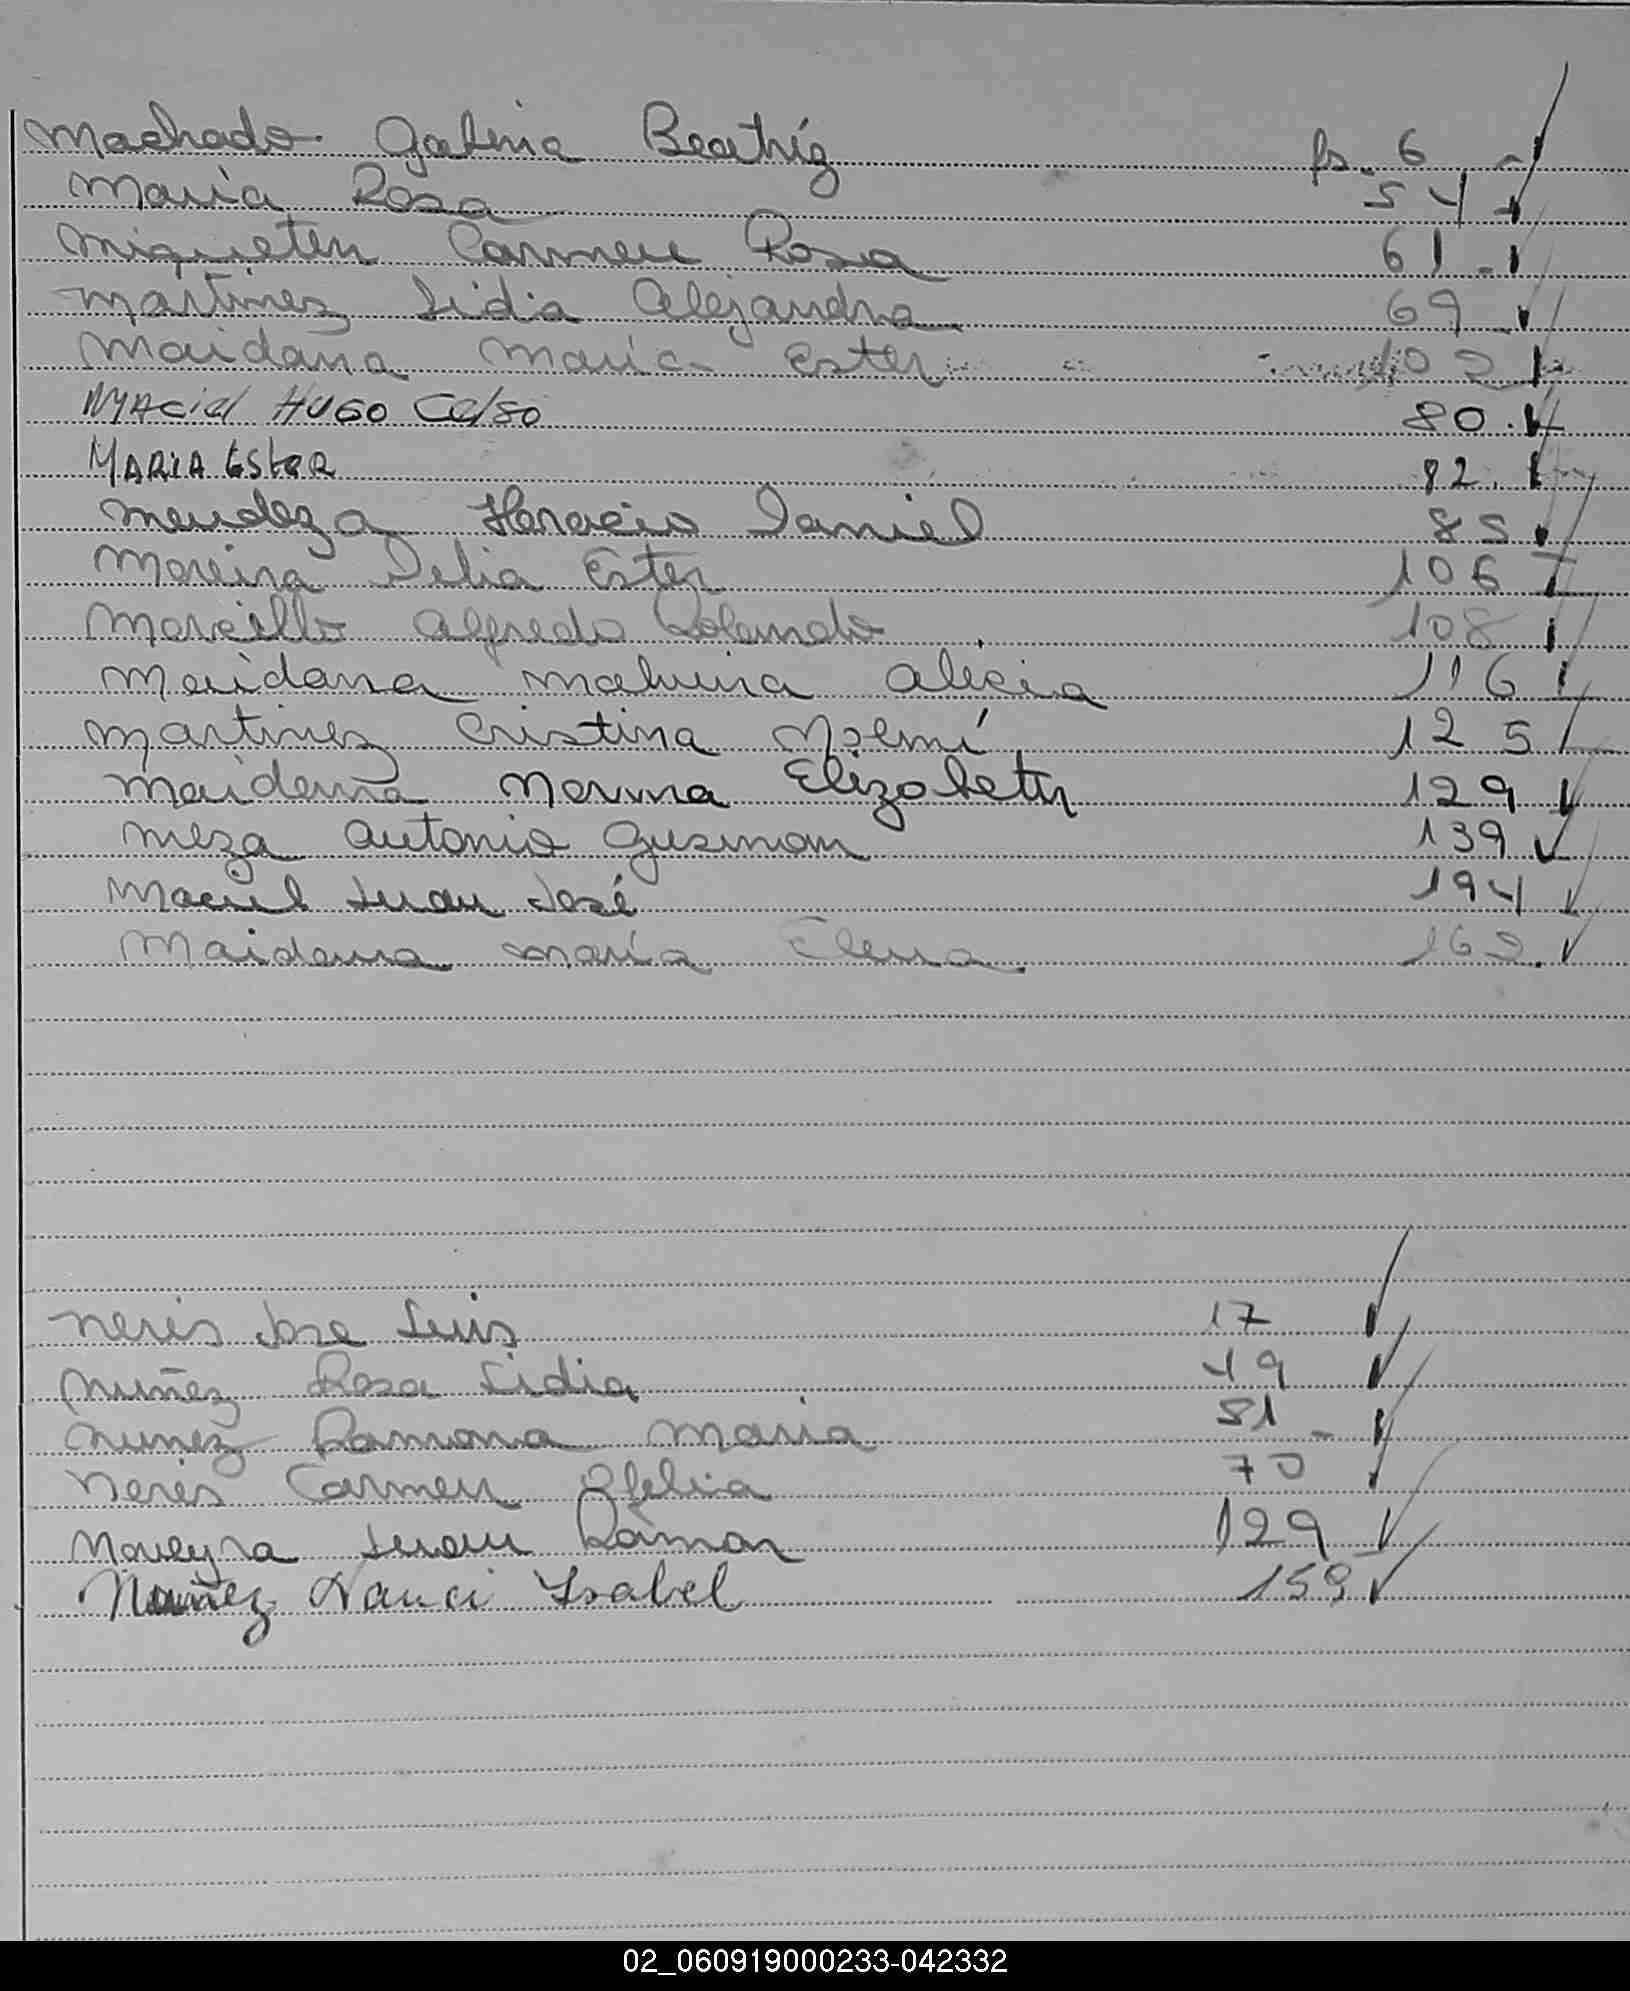 Machado Gabina Beatríz fs. 6
Maria Rosa 54
Miqueten Carmen Rosa 61
Martinez Lidia Alejandra 69
Maidana Maria Ester 102
MAciel HUGO Celso 80
MARIA EsteR 82
Mendoza Horacio Daniel 85
Moreira Delia Ester 106
Morcillo Alfredo Rolando 108
Maidana Malvina Alicia 116
Martinez Cristina Noemí 125
Maidana Norma Elizabeth 129
Meza Antonio Gusman 139
Maciel Juan José 194
Maidana María Elena 162
Neris Jose Luis 17
Nuñez Rosa Lidia 49
Nunez Ramona Maria 51
Neris Carmen Ofelia 70
Noveyra Juan Ramon 129
Nuñez Nanci Isabel 159
02_060919000233-042332